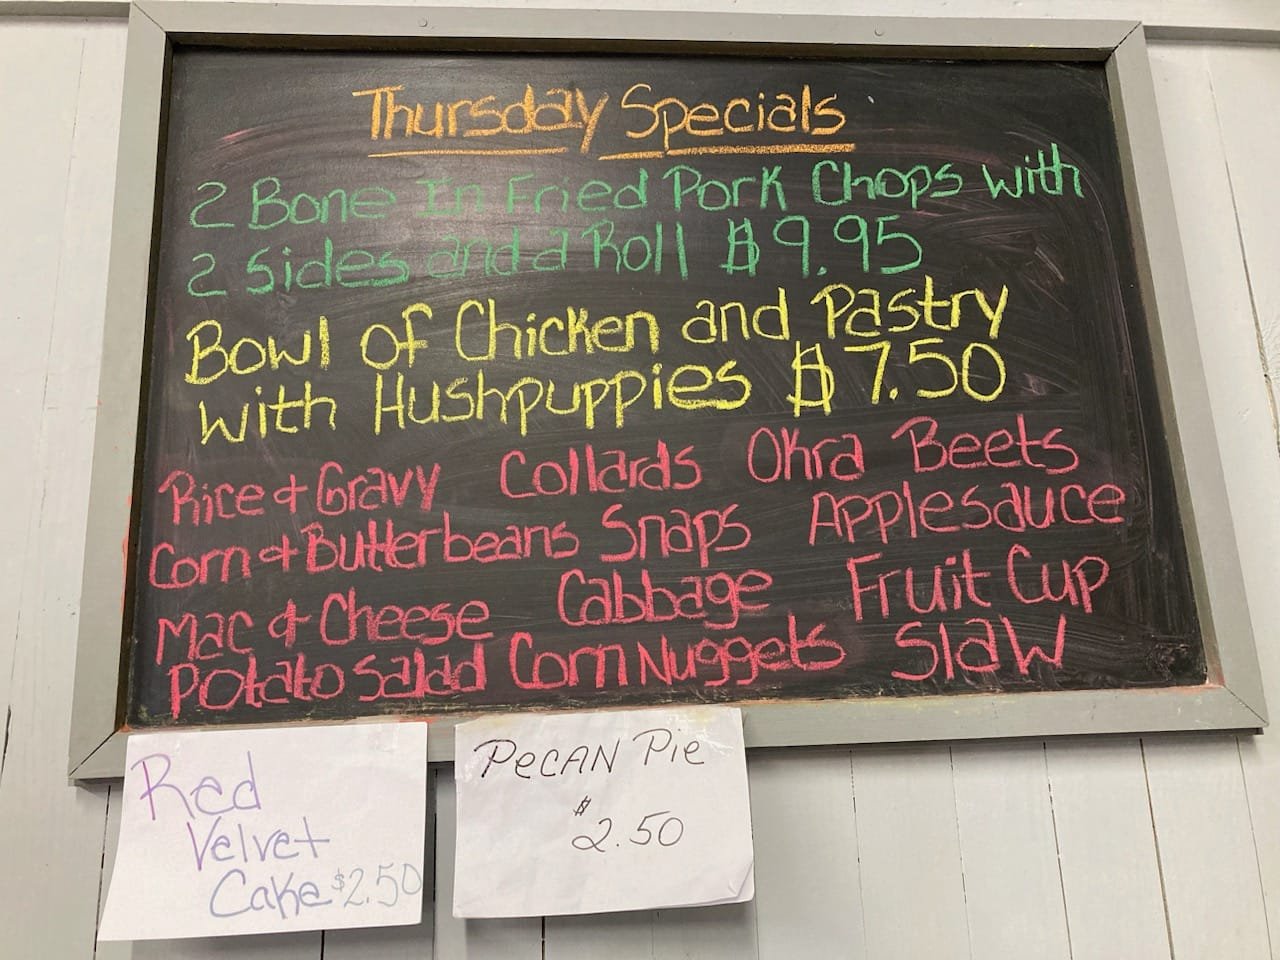 Thursday Specials
2 Bone In Fried Pork Chops with
2 Sides and a Roll $9.95
Bowl of Chicken and Pastry
with Hushpuppies $7.50
Rice & Gravy Collards Okra Beets
Corn & Butterbeans Snaps Applesauce
Mac & Cheese Cabbage Fruit Cup
Potato Salad Corn Nuggets Slaw
Red
Velvet
Cake $2.50
Pecan Pie
$2.50